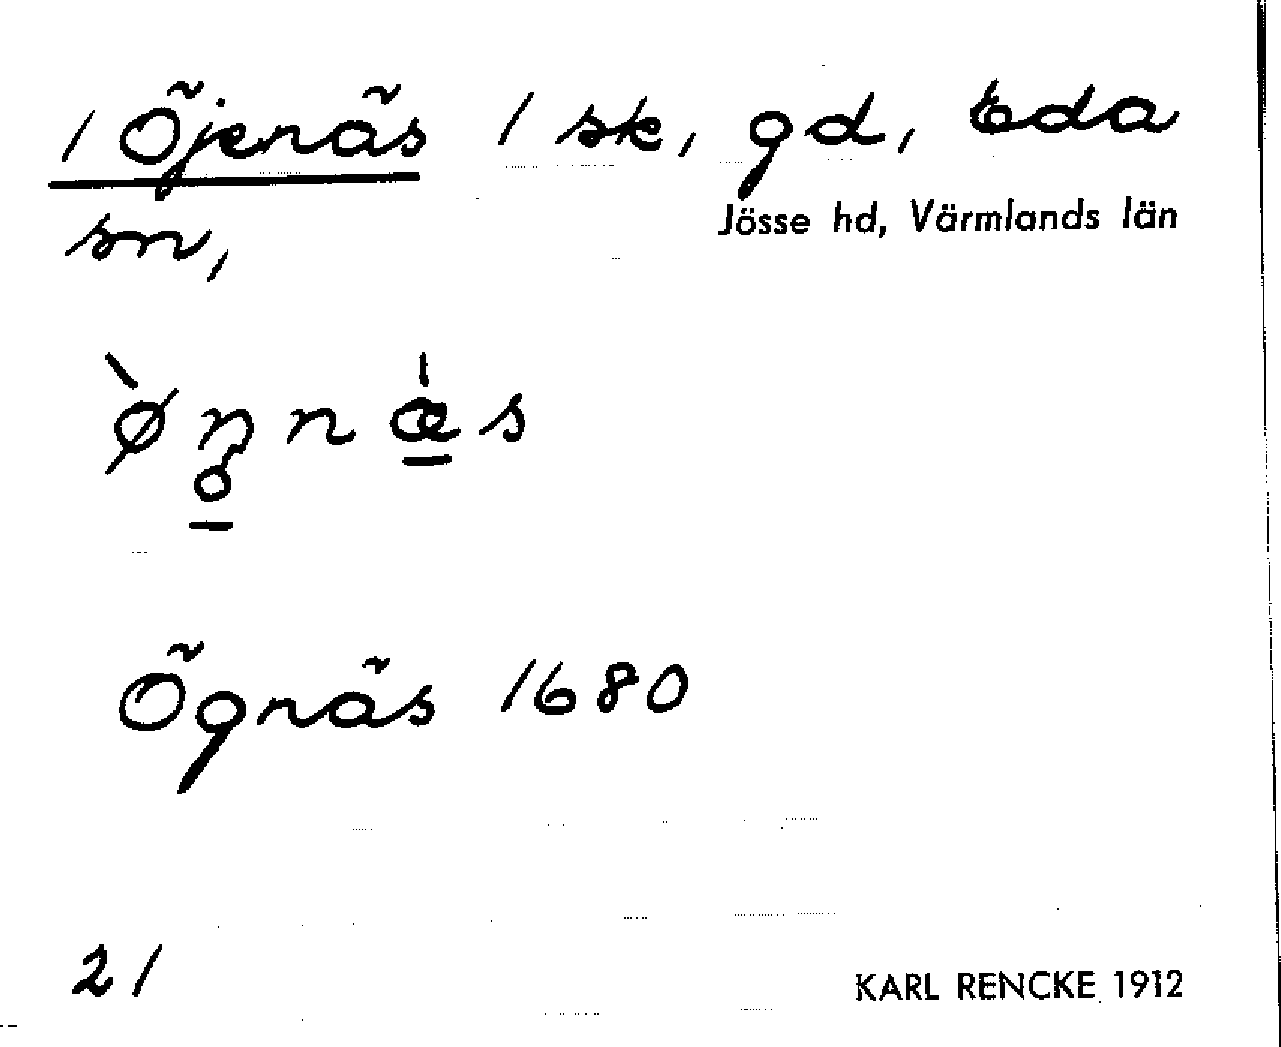 1 Öjenäs 1 sk, gd, Eda
Jösse hd, Värmlands län
sn,
Ögnäs 1680
21
KARL RENCKE 1912